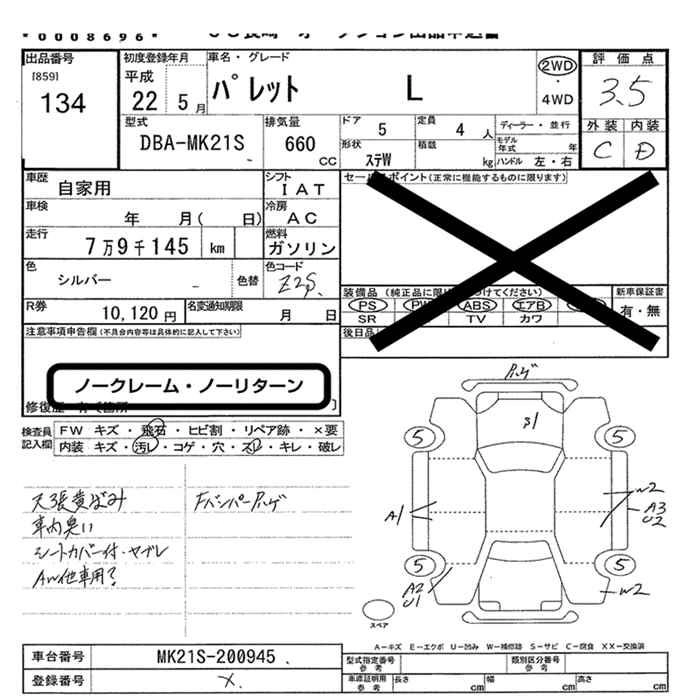 *0008696*
出品番号 [859] 134
初度登録年月 平成 22 5月
車名・グレード パレット L
2WD・4WD
評価点 3.5
外装 C 内装 D
型式 DBA-MK21S
排気量 660 cc
ドア 5
定員 4人
ディーラー・並行
モデル年式 年
形状 ステW
積載 kg
ハンドル 左・右
車歴 自家用
シフト IAT
セールスポイント(正常に機能するものに限ります)
車検 年 月( 日)
冷房 AC
走行 7万9千145 km
燃料 ガソリン
色 シルバー
色替
色コード Z2S
装備品
新車保証書 有・無
PS PW ABS エアB
SR TV カワ
R券 10,120円
名変通知期限 月 日
後日品
注意事項申告欄(不具合内容等は具体的に記入して下さい)
ノークレーム・ノーリターン
検査員記入欄
FW キズ・飛石・ヒビ割・リペア跡・×要
内装 キズ・汚レ・コゲ・穴・スレ・キレ・破レ
天張黄ばみ
Fバンパーハゲ
車内臭い
シートカバー付・ヤブレ
AW他車用?
ハゲ
S1
5 5
W2
A1
A3
U2
5 5
A2
U1
W2
スペア
A-キズ E-エクボ U-凹み W-補修跡 S-サビ C-腐食 XX-交換済
車台番号 MK21S-200945
型式指定番号 参考
類別区分番号 参考
登録番号 ×
車庫証明用 参考
長さ cm 幅 cm 高さ cm